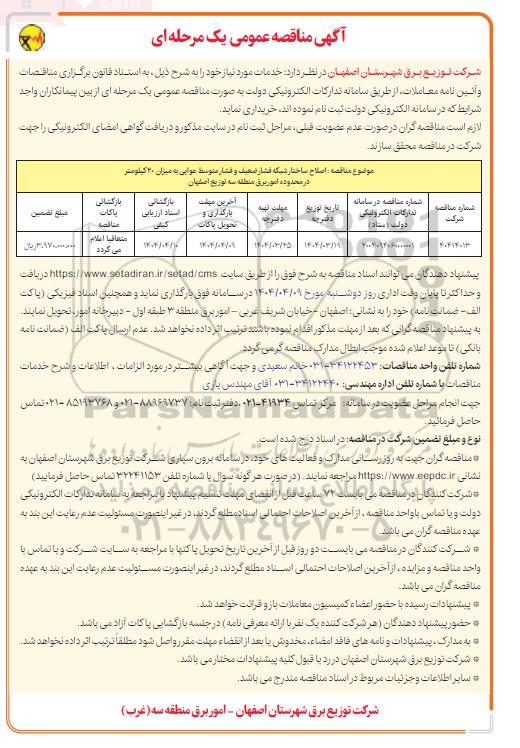 آگهی مناقصه عمومی یک مرحله ای
شرکت توزیع برق شهرستان اصفهان در نظر دارد: خدمات مورد نیاز خود را به شرح ذیل، به استناد قانون برگزاری مناقصات
وآئین نامه معاملات، از طریق سامانه تدارکات الکترونیکی دولت به صورت مناقصه عمومی یک مرحله ای از بین پیمانکاران واجد
شرایط که در سامانه الکترونیکی دولت ثبت نام نموده اند، خریداری نماید.
لازم است مناقصه گران در صورت عدم عضویت قبلی، مراحل ثبت نام در سایت مذکور و دریافت گواهی امضای الکترونیکی را جهت
شرکت در مناقصه محقق سازند.
موضوع مناقصه: اصلاح ساختار شبکه فشار ضعیف و فشار متوسط هوایی به میزان ۲۰ کیلومتر
در محدوده امور برق منطقه سه توزیع اصفهان
شماره مناقصه شرکت | شماره مناقصه در سامانه تدارکات الکترونیکی دولت (ستاد) | تاریخ توزیع دفترچه | مهلت تهیه دفترچه | آخرین مهلت بارگذاری و تحویل پاکات | بازگشائی اسناد ارزیابی کیفی | بازگشائی پاکات مناقصه | مبلغ تضمین
۴۰۴۱۴۰۱۳ | ۲۰۰۴۰۹۴۰۶۰۰۰۰۰۱ | ۱۴۰۴/۰۳/۱۹ | ۱۴۰۴/۰۳/۲۵ | ۱۴۰۴/۰۴/۰۹ | ۱۴۰۴/۰۴/۱۰ | متعاقبا اعلام می گردد | ۳،۹۷۰،۰۰۰،۰۰۰ریال
پیشنهاد دهندگان می توانند اسناد مناقصه به شرح فوق را از طریق سایت https://www.setadiran.ir/setad/cms دریافت
و حداکثر تا پایان وقت اداری روز دوشنبه مورخ ۱۴۰۴/۰۴/۰۹ در سامانه فوق بارگذاری نماید و همچنین اسناد فیزیکی (پاکت
الف - ضمانت نامه) خود را به نشانی: اصفهان - خیابان شریف غربی - امور برق منطقه ۳ طبقه اول - دبیرخانه امور، تحویل نمایند.
به پیشنهاد مناقصه گرانی که بعد از مهلت مذکور اقدام نموده باشند ترتیب اثر داده نخواهد شد. عدم ارسال پاکت الف (ضمانت نامه
بانکی) تا موعد اعلام شده موجب ابطال مدارک مناقصه گر می گردد.
شماره تلفن واحد مناقصات: ۳۴۱۲۲۴۵۳-۰۳۱ خانم سعیدی و جهت آگاهی بیشتر در مورد الزامات، اطلاعات و شرح خدمات
مناقصات با شماره تلفن اداره مهندسی: ۳۴۱۲۲۴۴۰-۰۳۱ آقای مهندس یاری
جهت انجام مراحل عضویت در سامانه: مرکز تماس ۴۱۹۳۴-۰۲۱ ،دفتر ثبت نام: ۸۸۹۶۹۷۳۷-۰۲۱ و ۸۵۱۹۳۷۶۸-۰۲۱ تماس
حاصل فرمائید.
نوع و مبلغ تضمین شرکت در مناقصه: در اسناد درج شده است.
* مناقصه گران جهت به روز رسانی مدارک و فعالیت های خود، در سامانه برون سپاری شرکت توزیع برق شهرستان اصفهان به
نشانی https://www.eepdc.ir مراجعه نمایند. (در صورت هر گونه سوال با شماره تلفن ۳۲۲۴۱۱۵۳ تماس حاصل فرمایید)
* شرکت کنندگان در مناقصه می بایست ۷۲ ساعت قبل از انقضای مهلت تسلیم پیشنهاد با مراجعه به سامانه تدارکات الکترونیکی
دولت و یا تماس با واحد مناقصه، از آخرین اصلاحات احتمالی اسناد مطلع گردند، در غیر اینصورت مسئولیت عدم رعایت این بند به
عهده مناقصه گران می باشد.
* شرکت کنندگان در مناقصه می بایست دو روز قبل از آخرین تاریخ تحویل پاکتها با مراجعه به سایت شرکت و یا تماس با
واحد مناقصه و مزایده، از آخرین اصلاحات احتمالی اسناد مطلع گردند، در غیر اینصورت مسئولیت عدم رعایت این بند به عهده
مناقصه گران می باشد.
* پیشنهادات رسیده با حضور اعضاء کمیسیون معاملات باز و قرائت خواهد شد.
* حضور پیشنهاد دهندگان (هر شرکت کننده یک نفر با ارائه معرفی نامه) در جلسه بازگشایی پاکات آزاد می باشد.
* به مدارک، پیشنهادات و نامه های فاقد امضاء، مخدوش یا بعد از انقضاء مهلت مقرر واصل شود مطلقاً ترتیب اثر داده نخواهد شد.
* شرکت توزیع برق شهرستان اصفهان در رد یا قبول کلیه پیشنهادات مختار می باشد.
* سایر اطلاعات وجزئیات مربوط در اسناد مناقصه مندرج می باشد.
شرکت توزیع برق شهرستان اصفهان - امور برق منطقه سه (غرب)
۰۲۱-۸۸۳۴۹۶۷۰-۵